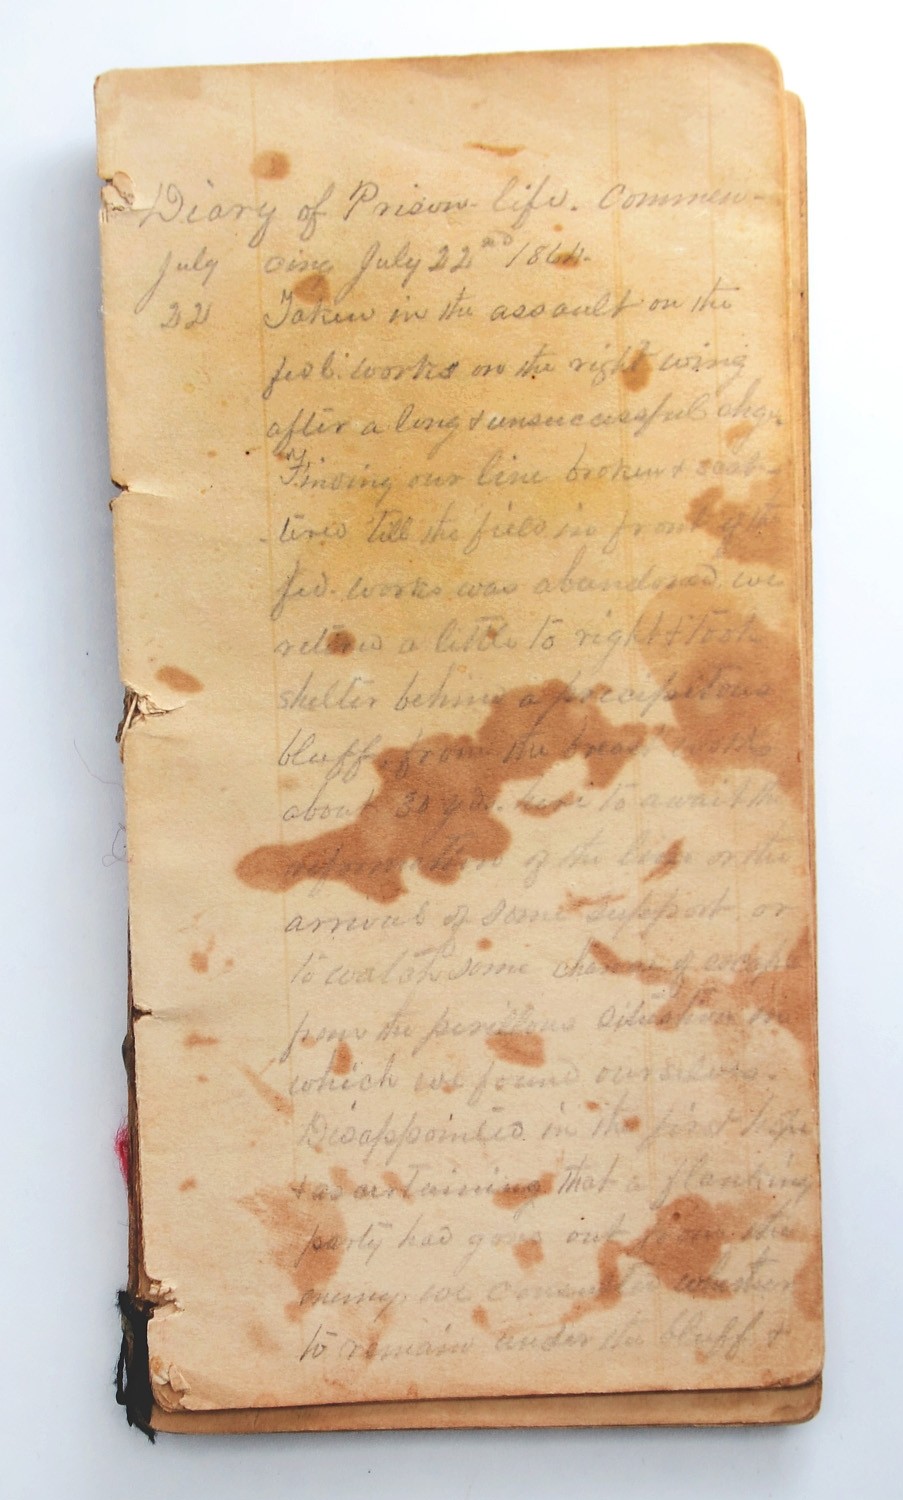 Diary of Prison life. Commen-
July cing July 22nd 1864.
22 Taken in the assault on the
fed. works on the right wing
after a long & unsuccessful chge.
Finding our line broken & scat-
tered till the field in front of the
fed. works was abandoned we
retired a little to right & took
shelter behind a precipitous
bluff, from the breast works
about 30 yds. here to await the
reformation of the line or the
arrival of some support or
to watch some chance of escape
from the perillous situation in
which we found ourselves.
Disappointed in the first hope
& ascertaining that a flanking
party had gone out from the
enemy, we consulted whether
to remain under the bluff &